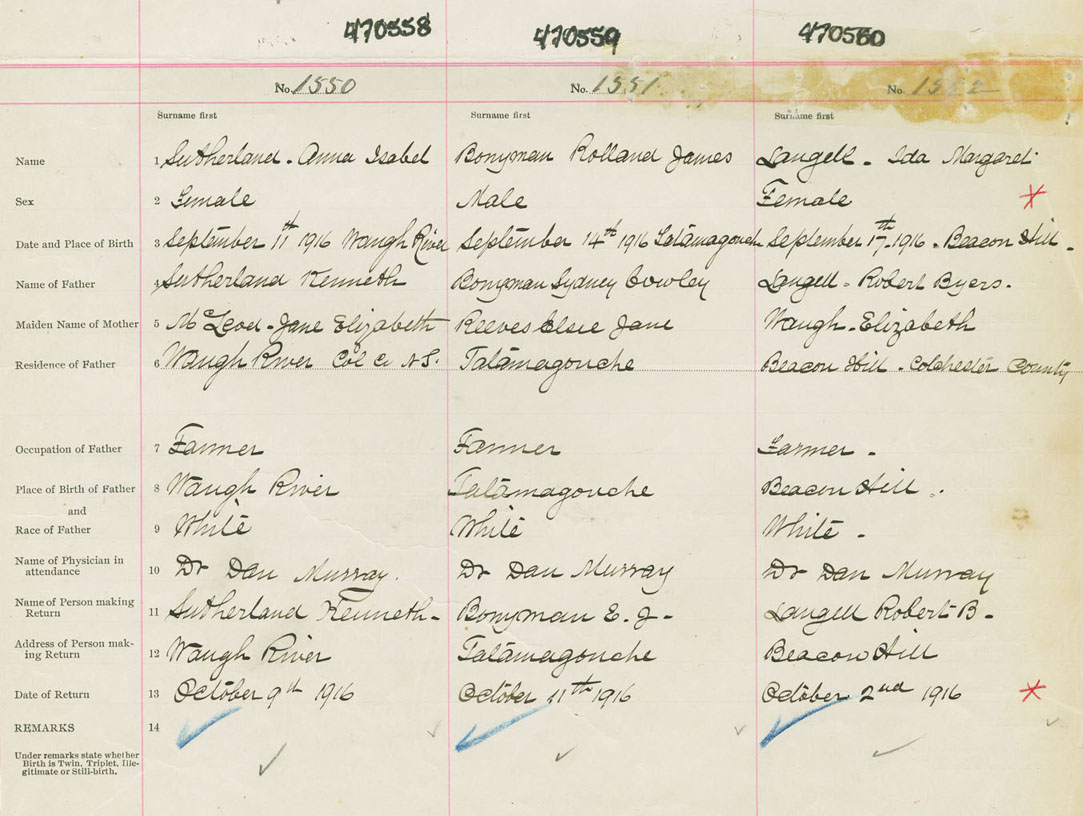 470558 470559 470560
No. 1550 No. 1551 No. 1552
Surname first Surname first Surname first
Name 1 Sutherland - Anna Isabel Bonyman Rolland James Langell - Ida Margaret
Sex 2 Female Male Female
Date and Place of Birth 3 September 11th 1916 Waugh River September 14th 1916 Tatamagouch September 17th 1916 - Beacon Hill -
Name of Father 4 Sutherland Kenneth Bonyman Sydney Cowley Langell - Robert Byers -
Maiden Name of Mother 5 McLeod - Jane Elizabeth Reeves Elsie Jane Waugh - Elizabeth
Residence of Father 6 Waugh River Col Co N.S. Tatamagouche Beacon Hill - Colchester County
Occupation of Father 7 Farmer Farmer Farmer -
Place of Birth of Father 8 Waugh River Tatamagouche Beacon Hill -
and
Race of Father 9 White White White -
Name of Physician in
attendance 10 Dr Dan Murray. Dr Dan Murray Dr Dan Murray
Name of Person making
Return 11 Sutherland Kenneth - Bonyman E. J - Langell Robert B -
Address of Person mak-
ing Return 12 Waugh River Tatamagouche Beacon Hill
Date of Return 13 October 9th 1916 October 11th 1916 October 2nd 1916
REMARKS 14
Under remarks state whether
Birth is Twin, Triplet, Ille-
gitimate or Still-birth.